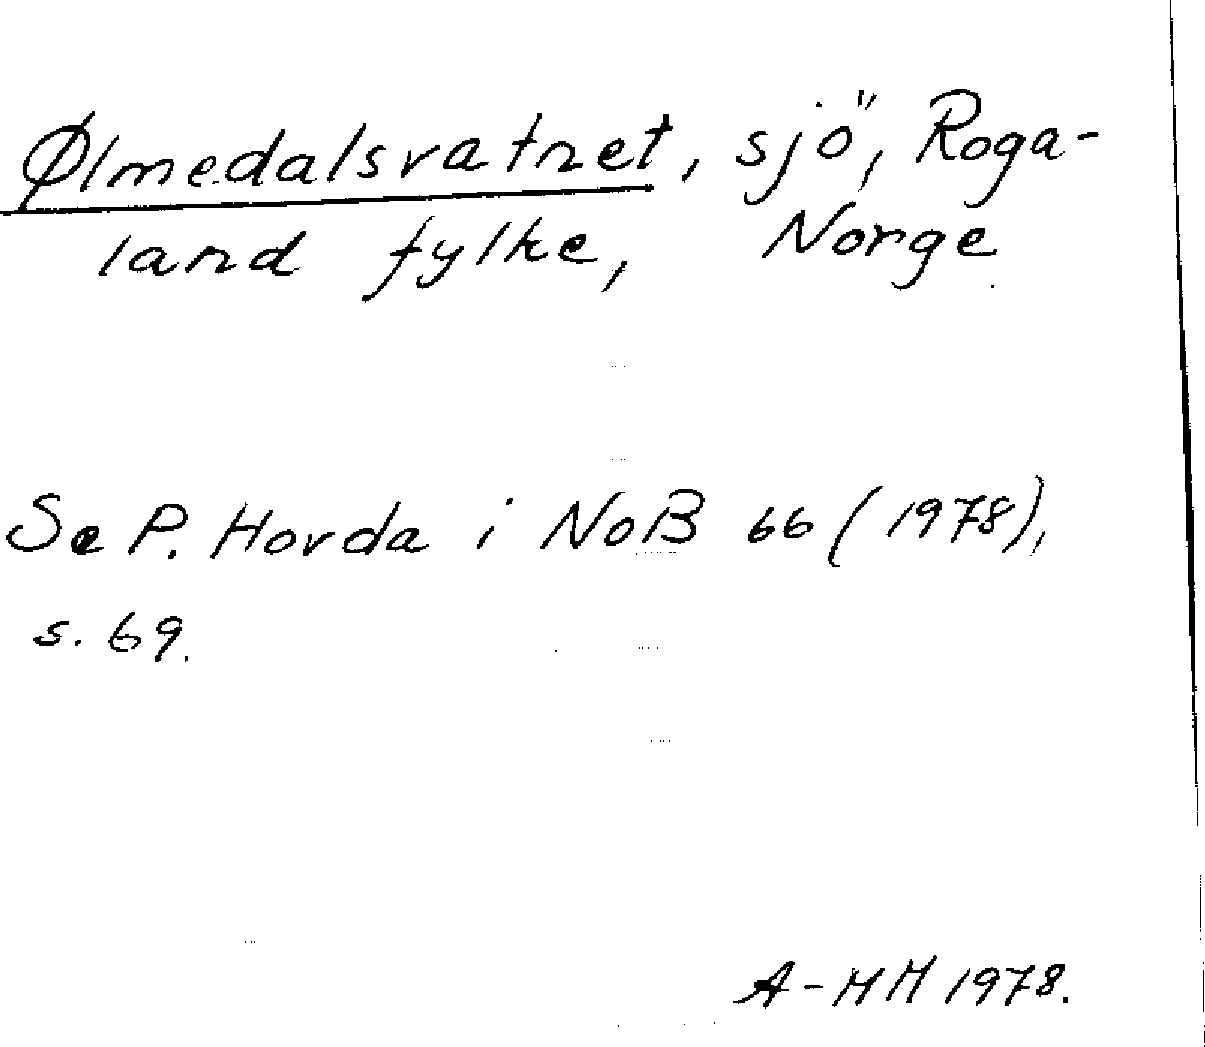 Ølmedalsvatnet, sjö, Roga-
land fylke, Norge
Se P. Hovda i NoB 66 (1978),
s. 69.
A-MH 1978.